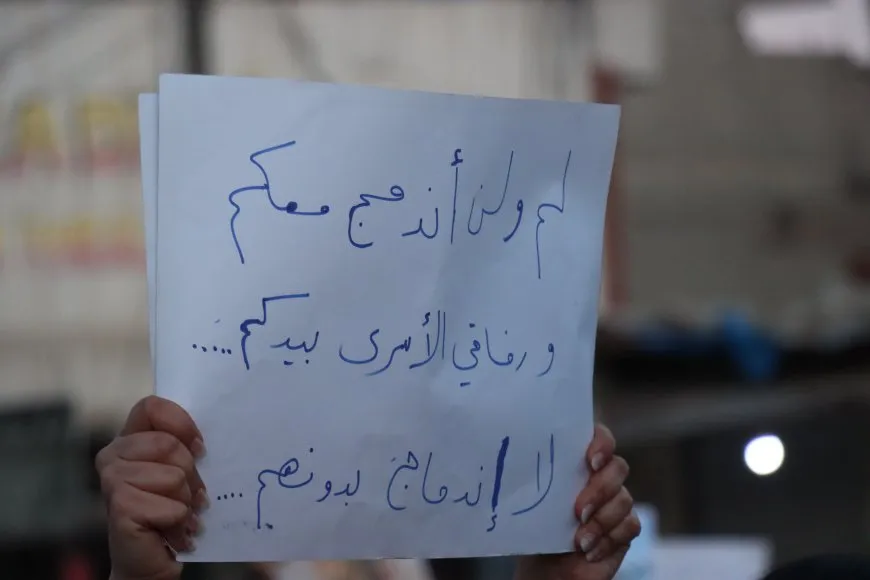 لم ولن أندمج معكم
ورفاقي الأسرى بيدكم .....
لا إندماج بدونهم ....